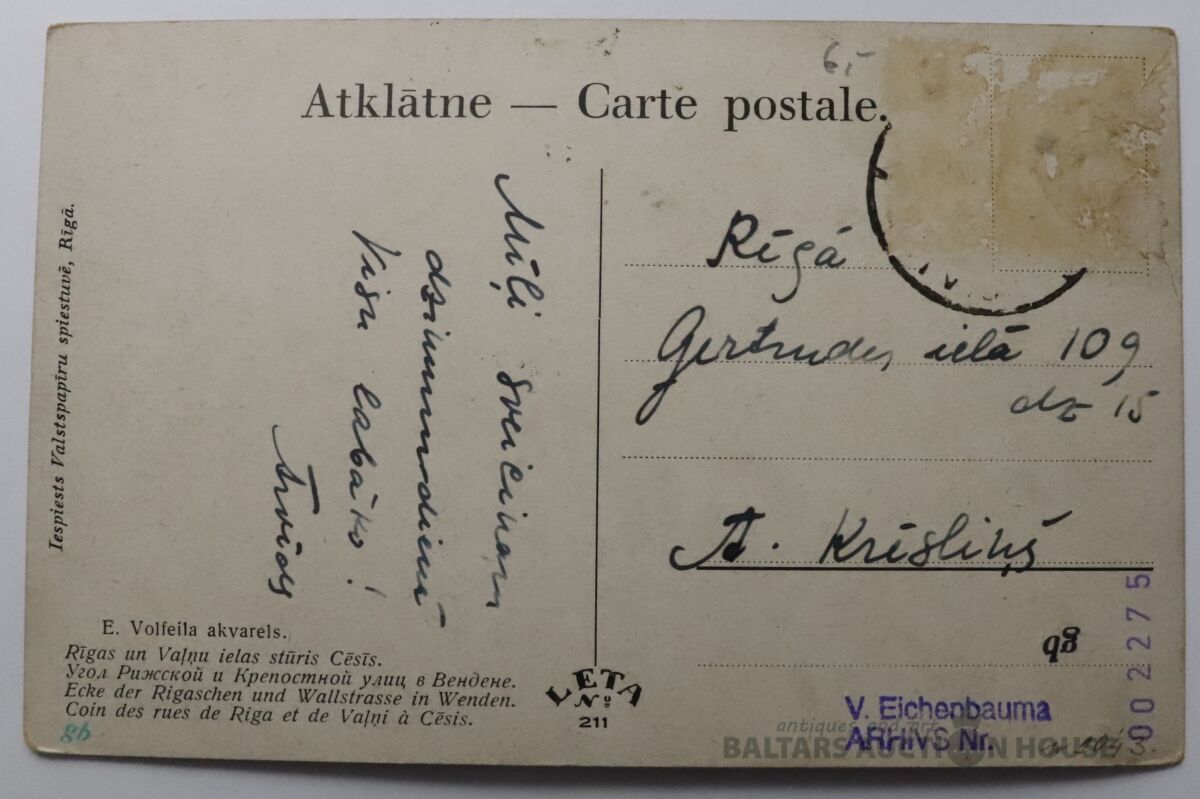 Atklātne — Carte postale.
Mīļi sveicinam
dzimumdienā
Visu labāko!
Arvīds
Rīgā
Ģertrudes ielā 109
dz 15
A. Krēsliņš
Iespiests Valstspapīru spiestuvē, Rīgā.
E. Volfeila akvarels.
Rīgas un Vaļņu ielas stūris Cēsīs.
Угол Рижской и Крепостной улиц в Вендене.
Ecke der Rigaschen und Wallstrasse in Wenden.
Coin des rues de Riga et de Vaļņi à Cēsis.
gb
LETA
No
211
V. Eichenbauma
ARHIVS Nr.
002275
antiques and art
BALTARS AUCTION HOUSE